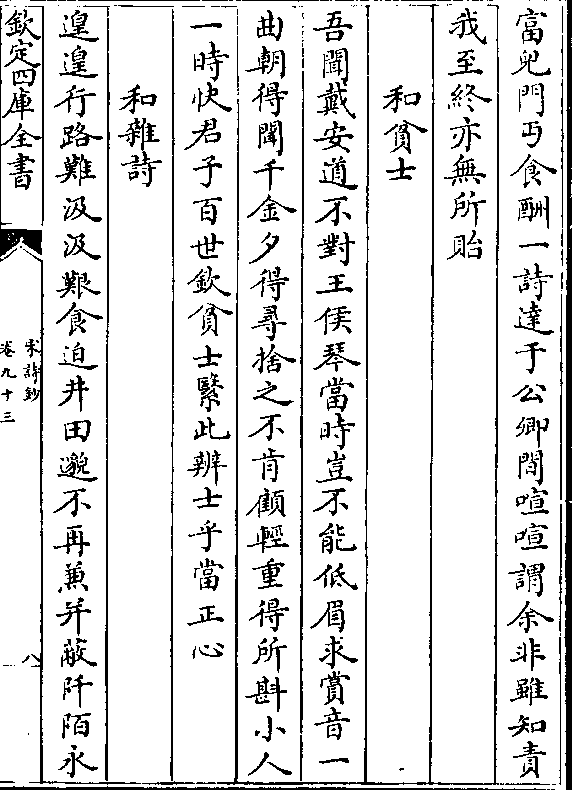 富兒門丐食酬一詩達于公卿間喧喧謂余非雖知責
我至終亦無所貽
和貧士
吾聞戴安道不對王侯琴當時豈不能低眉求賞音一
曲朝得聞千金夕得尋捨之不肯顧輕重得所斟小人
一時快君子百世欽貧士繄此辨士乎當正心
和雜詩
遑遑行路難汲汲艱食迫井田邈不再兼并蔽阡陌永
欽定四庫全書
宋詩鈔
卷九十三
八